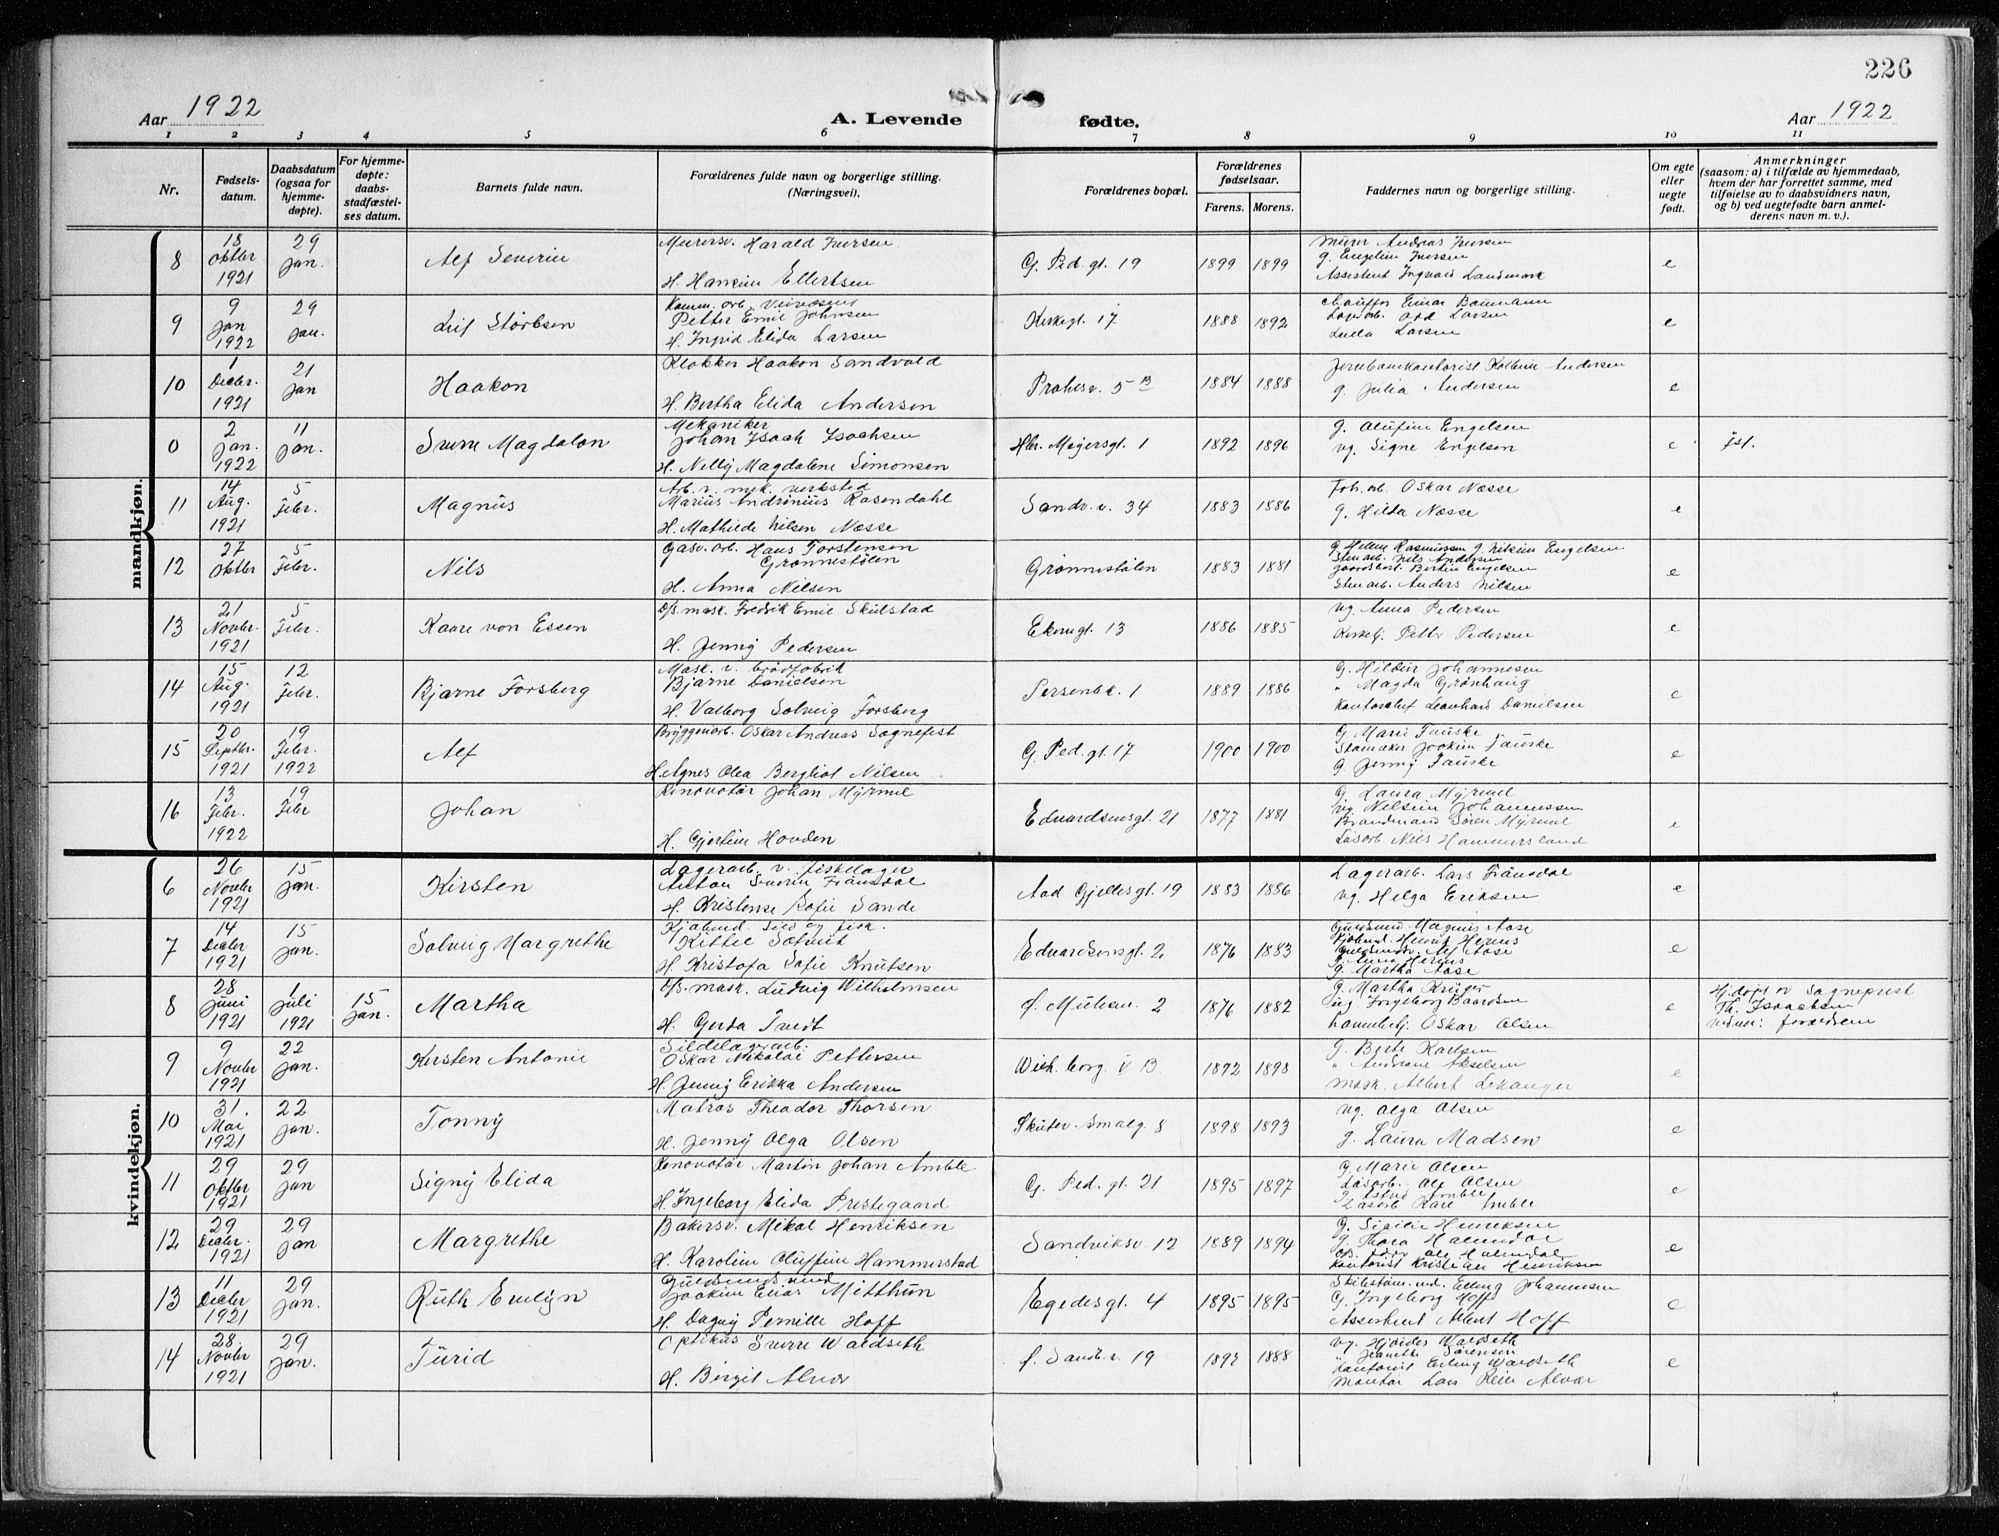 226
Aar 1922
A. Levende fødte.
Aar 1922
1 2 3 4 5 6 7 8 9 10 11
Nr.
Fødsels-
datum.
Daabsdatum
(ogsaa for
hjemme-
døpte).
For hjemme-
døpte:
daabs-
stadfæstel-
ses datum.
Barnets fulde navn.
Forældrenes fulde navn og borgerlige stilling.
(Næringsvei).
Forældrenes bopæl.
Forældrenes
fødselsaar.
Farens. Morens.
Faddernes navn og borgerlige stilling.
Om egte
eller
uegte
født.
Anmerkninger
(saasom: a) i tilfælde av hjemmedaab,
hvem der har forrettet samme, med
tilføielse av to daabsvidners navn,
og b) ved uegtefødte barn anmel-
derens navn m. v.).
mandkjøn.
8
18
Oktbr
1921
29
Jan.
Alf Severin
Murersv. Harald Iversen
H. Hansine Ellertsen
G. Ped. gt. 19
1899 1899
Murer Andreas Iversen
g. Engeline Iversen
Assistent Ingvald Landmark
e
9
9
Jan
1922
29
Jan.
Leif Størksen
Komm. arb. Veivæsen
Petter Emil Johnsen
H. Ingrid Elida Larsen
Kirkegt. 17
1888 1892
Chauffør Einar Baumann
Løsarb. Odd Larsen
Luella Larsen
e
10
1
Decbr.
1921
21
Jan
Haakon
Klokker Haakon Sandvold
H. Bertha Elida Andersen
Prahlsv. 5 B
1884 1888
Jernbanekontorist Kolbein Andersen
g. Julia Andersen
e
0
2
Jan.
1922
11
Jan.
Sverre Magdalon
Mekaniker
Johan Isach Isachsen
H. Nelly Magdalene Simonsen
Hbr. Meyersgt. 1
1892 1896
g. Olufine Engelsen
vg. Signe Engelsen
e
11
14
Aug.
1921
5
Febr.
Magnus
Arb. v. mek. verksted
Marius Andrinius Rosendahl
H. Mathilde Nilsen Næsse
Sandv. v. 34
1883 1886
Fob. arb. Oskar Næsse
g. Hilda Næsse
e
12
27
Oktbr
5
Febr.
Nils
Gasv. arb. Hans Torstensen
Grønnestølen
H. Anna Nilsen
Grønnestølen
1883 1881
g. Helene Rasmussen g. Nilsine Engelsen
Stenarb. Nils Andersen
Gaardsbest. Bertin Engelsen
Stenarb. Anders Nilsen
e
13
21
Novbr.
1921
5
Febr.
Kaare von Essen
D/s mask. Fredrik Emil Skulstad
H. Jenny Pedersen
Ekrengt. 13
1886 1885
vg. Anna Pedersen
Kirkebj. Petter Pedersen
e
14
15
Aug.
1921
12
Febr.
Bjarne Forsberg
Mask. v. brødfabrik
Bjarne Danielsen
H. Valborg Solveig Forsberg
Persenbk. 1
1889 1886
g. Hildur Johannesen
" Magda Grønhaug
Kontorchef Leonhard Danielsen
e
15
20
Septbr.
1921
19
Febr.
1922
Alf
Bryggearb. Oskar Andreas Sognefest
H. Agnes Olea Bergliot Nilsen
G. Ped. gt. 17
1900 1900
G. Marie Fauske
Skomaker Joakim Fauske
g. Jenny Fauske
e
16
13
Febr.
1922
19
Febr
Johan
Renovatør Johan Myrmel
H. Gjertine Hovden
Edvardsensgt. 21
1877 1881
G. Laura Myrmel
vg. Nelsine Johannessen
Brandmand Søren Myrmel
Løsarb. Nils Hammersland
e
kvindekjøn.
6
26
Novbr
1921
15
Jan.
Kirsten
Lagerarb. v. fiskelager
Anton Severin Fransdal
H. Kristense Sofie Sande
Aad Gjellesgt. 19
1883 1886
Lagerarb. Lars Fransdal
vg. Helga Eriksen
e
7
14
Decbr
1921
15
Jan.
Solveig Margrethe
Kjøbmd. Sild og fisk.
Kittel Solvit
H. Kristofa Sofie Knutsen
Edvardsensgt. 2
1876 1883
Guldsmed Magnus Aase
Kjøbmd. Henrik Herius
Guldsmedsv. Alf Aase
g. Anna Herius
g. Martha Aase
e
8
28
Juni
1921
1
Juli
1921
15
Jan.
Martha
D/s mask. Ludvig Wilhelmsen
H. Gerda Tvedt
f. Mulesv. 2
1876 1882
g. Martha Krüger
ug Ingeborg Baardsen
Kannebj. Oskar Olsen
e
Hj.døpt av Sogneprest
Th. Isaachsen
vidner: forældrene
9
9
Novbr
1921
22
Jan.
Kirsten Antonie
Sildelagerarb:
Oskar Nikolai Pettersen
H. Jenny Erikka Andersen
Wick. borg. V B.
1892 1898
g. Berte Karlsen
" Andreane Akselsen
Mask. Albert Lekanger
e
10
31.
Mai
1921
22
Jan.
Tonny
Matros Theodor Thorsen
H. Jenny Olga Olsen
Skutev. Smalg. 8
1898 1893
vg. Olga Olsen
g. Laura Madsen
e
11
29
Oktbr
1921
29
Jan
Signy Elida
Renovatør Martin Johan Amble
H. Ingeborg Elida Prestegaard
G. Ped. gt. 21
1895 1897
G. Marie Olsen
Løsarb. Alf Olsen
g. Astrid Amble
Løsarb Kåre Amble
e
12
29
Decbr.
1921
29
Jan
Margrethe
Bakersv. Mikal Henriksen
H. Karoline Oluffine Hammerstad
Sandviksv. 12
1889 1894
g. Sigilie Henriksen
g. Thora Halmdal
Alf Halmdal
Kontorist Kristian Henriksen
e
13
11
Decbr
1921
29
Jan.
Ruth Evelyn
Guldsmedsvend
Joakim Elias Mitthun
H. Dagny Pernille Hoff
Egedesgt. 4
1895 1895
Skibstøm.md. Elling Johannesen
G. Ingeborg Hoff
Assistent Albert Hoff
e
14
28.
Novbr
1921
29
Jan.
Turid
Optikus Sverre Waldseth
H. Birgit Alver
f. Sandv. v. 19
1892 1888
vg. Hjørdis Waldseth
" Jeanette Sørensen
Kontorist Erling Waldseth
Montør Lars Rein Alver
e